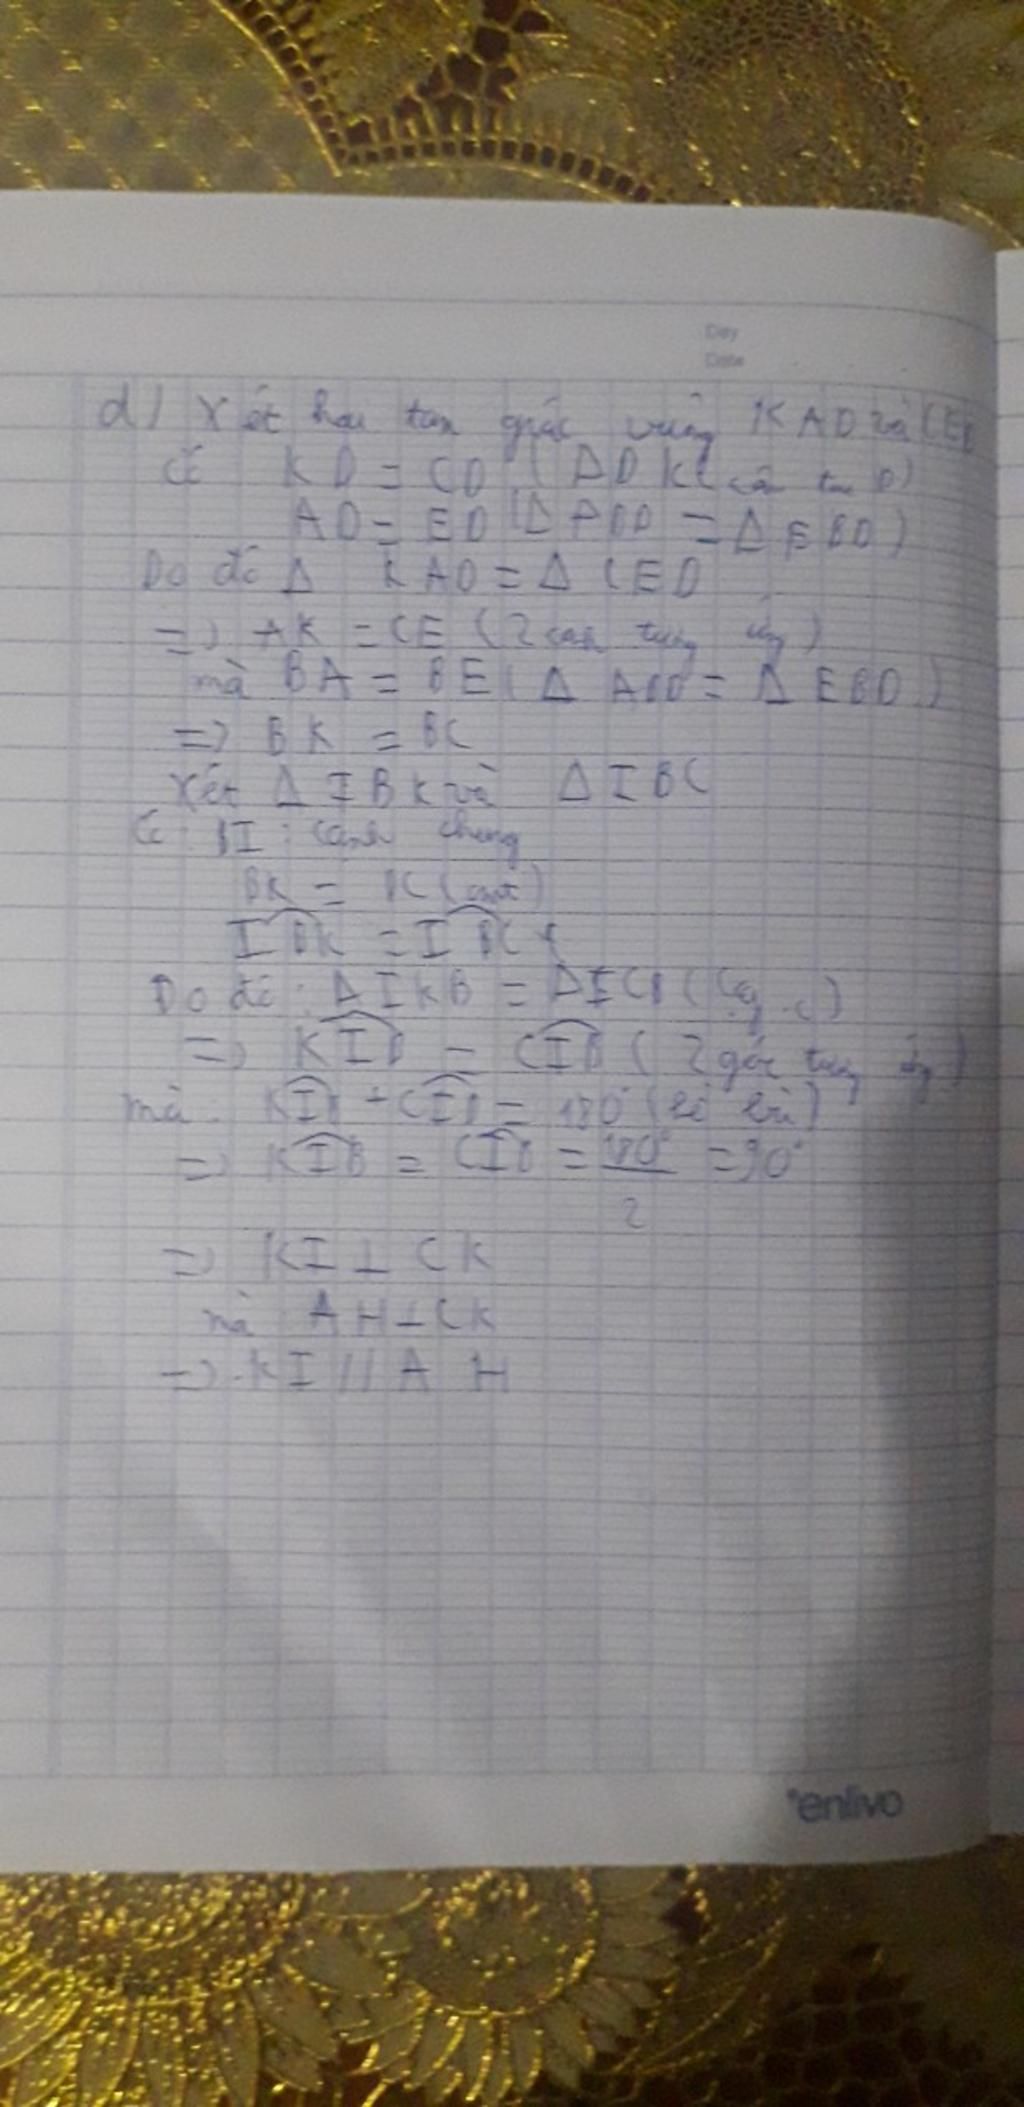 Day
Date
d) Xét hai tam giác vuông KAD và CED
Có KD = CD (ΔDKC cân tại D)
AD = ED (Δ ABD = Δ EBD)
Do đó Δ KAD = Δ CED
=> AK = CE (2 cạnh tương ứng)
mà BA = BE (Δ ABD = Δ EBD)
=> BK = BC
Xét Δ IBK và Δ IBC
Có: BI: cạnh chung
BK = BC (cmt)
IBK = IBC
Do đó: ΔIKB = ΔICB (c.g.c)
=> KIB = CIB (2 góc tương ứng)
mà: KIB + CIB = 180° (kề bù)
=> KIB = CIB = 180°/2 = 90°
=> KI ⊥ CK
mà AH ⊥ CK
=> KI // AH
enlivo